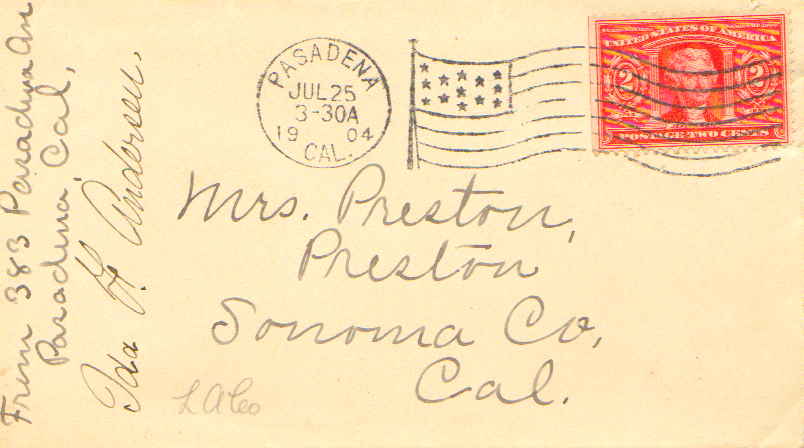 PASADENA
JUL 25
3-30A
19 04
CAL.
UNITED STATES OF AMERICA
2 2
POSTAGE TWO CENTS
Mrs. Preston,
Preston
Sonoma Co,
Cal.
From 383 Pasadena Av
Pasadena, Cal,
Ida H Andersen.
L A Co